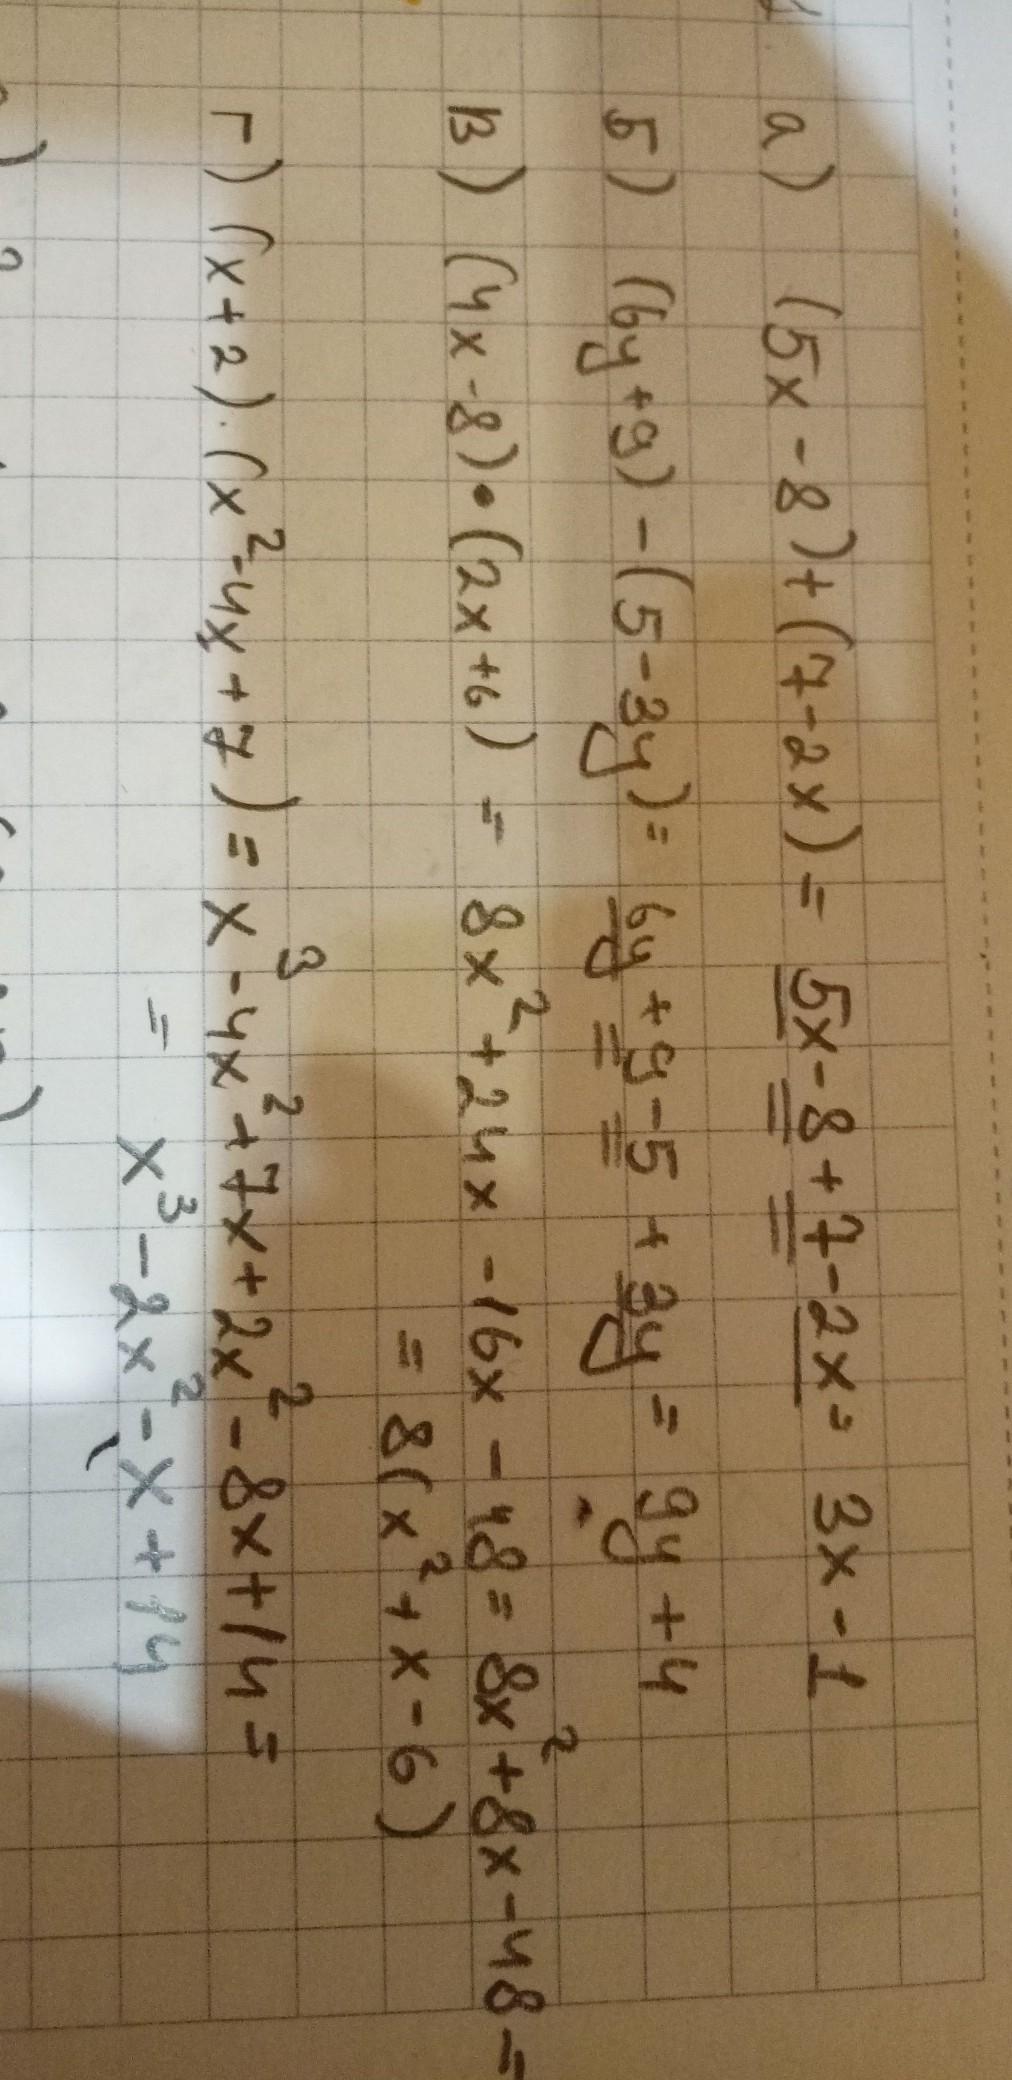 а) (5x - 8) + (7 - 2x) = 5x - 8 + 7 - 2x = 3x - 1
б) (6y + 9) - (5 - 3y) = 6y + 9 - 5 + 3y = 9y + 4
в) (4x - 8) • (2x + 6) = 8x² + 24x - 16x - 48 = 8x² + 8x - 48 =
= 8(x² + x - 6)
г) (x + 2) · (x² - 4x + 7) = x³ - 4x² + 7x + 2x² - 8x + 14 =
= x³ - 2x² - x + 14